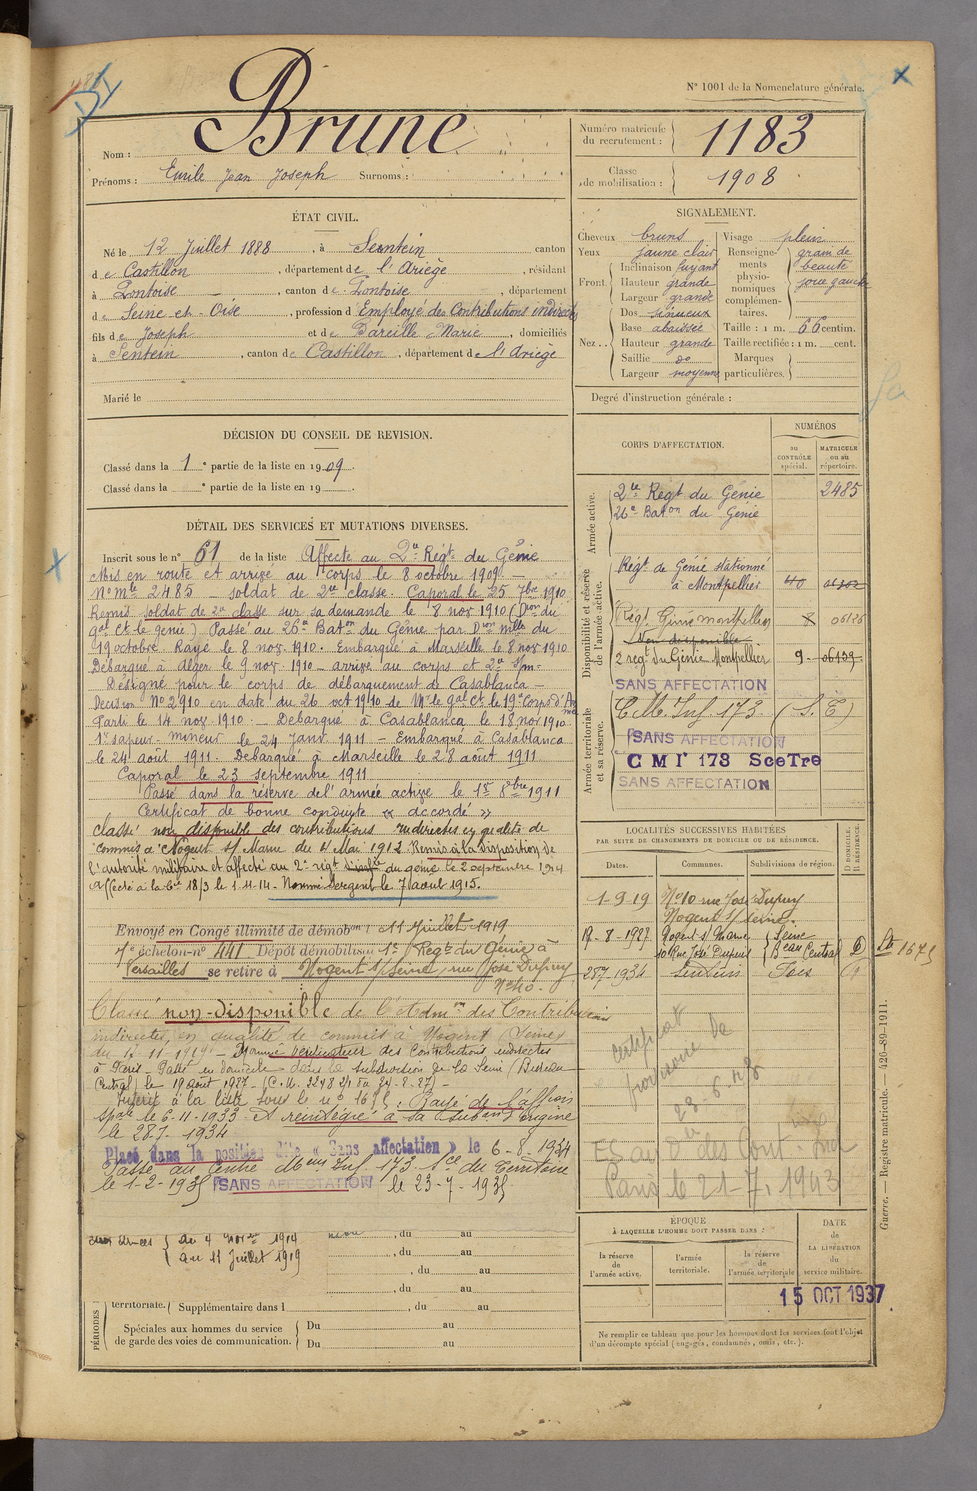 N° 1001 de la Nomenclature générale.
Nom : Brune
Prénoms : Emile Jean Joseph Surnoms :
Numéro matricule du recrutement : 1183
Classe de mobilisation : 1908
ÉTAT CIVIL.
Né le 12 Juillet 1888, à Sentein canton
de Castillon, département de l'Ariège, résidant
à Pontoise, canton de Pontoise, département
de Seine et Oise, profession d'Employé des Contributions indirectes
fils de Joseph et de Pareille Marie, domiciliés
à Sentein, canton de Castillon, département de l'Ariège
Marié le
SIGNALEMENT.
Cheveux bruns
Yeux jaune clair
Front Inclinaison fuyant
Hauteur grande
Largeur grande
Nez Dos sinueux
Base abaissée
Hauteur grande
Saillie do
Largeur moyenne
Visage plein
Renseignements physionomiques complémentaires. grain de beauté joue gauche
Taille : 1 m. 66 centim.
Taille rectifiée : 1 m. cent.
Marques particulières.
Degré d'instruction générale :
DÉCISION DU CONSEIL DE REVISION.
Classé dans la 1e partie de la liste en 1909.
Classé dans la e partie de la liste en 19
DÉTAIL DES SERVICES ET MUTATIONS DIVERSES.
Inscrit sous le n° 61 de la liste Affecté au 2e Régt du Génie
Mis en route et arrivé au corps le 8 octobre 1909 —
N° Mle 2485 — soldat de 2e classe. Caporal le 25 7bre 1910
Remis soldat de 2e classe sur sa demande le 8 nov 1910 (Dion du
gal Ct le génie) Passé au 26e Baton du Génie par Dion mlle du
19 octobre Rayé le 8 nov. 1910. Embarqué à Marseille le 8 nov 1910
Débarqué à Alger le 9 nov. 1910 — arrivé au corps et 2e s/m-
Désigné pour le corps de débarquement de Casablanca —
Décision N° 2910 en date du 26 oct 1910 de Mr le gal Ct le 19e Corps d'Armée
Parti le 14 nov 1910 — Débarqué à Casablanca le 18 nov 1910
1er sapeur-mineur le 24 Janv 1911 — Embarqué à Casablanca
le 24 août 1911. Débarqué à Marseille le 28 août 1911
Caporal le 23 septembre 1911
Passé dans la réserve de l'armée active le 1er 8bre 1911
Certificat de bonne conduite « accordé »
classé non disponible des contributions indirectes en qualité de
commis à Nogent s/ Marne du 4 Mai 1912. Remis à la disposition de
l'autorité militaire et affecté au 2e régt du génie le 2 septembre 1914
Affecté à la Cie 18/3 le 1-11-14 - Nommé Sergent le 7 aout 1915.
Envoyé en Congé illimité de démobon le 11 Juillet 1919
7e échelon-n° 441 Dépôt démobilisr 1r (Regt du Génie) à
Versailles se retire à Nogent s/ Seine, rue José Dupuy
N° 40.
Classé non-disponible de l'Admon des Contributions
indirectes, en qualité de commis à Nogent (Seine)
du 12 11 1919 — Nommé vérificateur des Contributions indirectes
à Paris - Passé en domicile dans la subdivision de la Seine (Bureau
Central) le 19 août 1927 - (C.M. 3248 2/1 du 24-8-27) -
Inscrit à la liste sous le n° 1675 : Rayé de l'affon
spale le 6-11-1933 et réintégré à sa subdon d'origine
le 28-7-1934
Placé dans la position dite « Sans affectation » le 6-8-1934
Passé au Centre Mon Inf. 173. Sce du Territoire
le 1-2-1935 SANS AFFECTATION le 23-7-1935
aux armées { du 4 novbre 1914
au 11 Juillet 1919
, du au
, du au
, du au
, du au
PÉRIODES
territoriale. Supplémentaire dans l , du au
Spéciales aux hommes du service de garde des voies de communication. Du au
Du au
CORPS D'AFFECTATION.
NUMÉROS
au CONTRÔLE spécial.
MATRICULE ou au répertoire.
Armée active.
2e Régt du Génie 2485
26e Baton du Génie
Disponibilité et réserve de l'armée active.
Régt de Génie stationné
à Montpellier 40
Régt Génie Montpellier
Non disponible
2 regt du Génie Montpellier 9 06139
SANS AFFECTATION
Armée territoriale et sa réserve.
C. M. Inf. 173. (S. T.)
SANS AFFECTATION
C M I 173 Sce Tre
SANS AFFECTATION
LOCALITÉS SUCCESSIVES HABITÉES
PAR SUITE DE CHANGEMENTS DE DOMICILE OU DE RÉSIDENCE.
Dates. Communes. Subdivisions de région. D DOMICILE. R RÉSIDENCE.
1-9-19 N° 10 rue José Dupuy
Nogent s/ Seine.
19-8-1927 Nogent s/ Marne Seine
10 Rue José Dupuis Beau Central D 1675
28 7-1934 Sentein Foix
certificat
provisoire de
28-6-48
ES au des Cont. Ind
Paris le 21-7-1943
ÉPOQUE
À LAQUELLE L'HOMME DOIT PASSER DANS :
la réserve de l'armée active.
l'armée territoriale.
la réserve de l'armée territoriale
DATE DE LA LIBÉRATION du service militaire.
15 OCT 1937
Ne remplir ce tableau que pour les hommes dont les services font l'objet
d'un décompte spécial (engagés, condamnés, omis, etc.).
Guerre. — Registre matricule. — 426-89-1911.